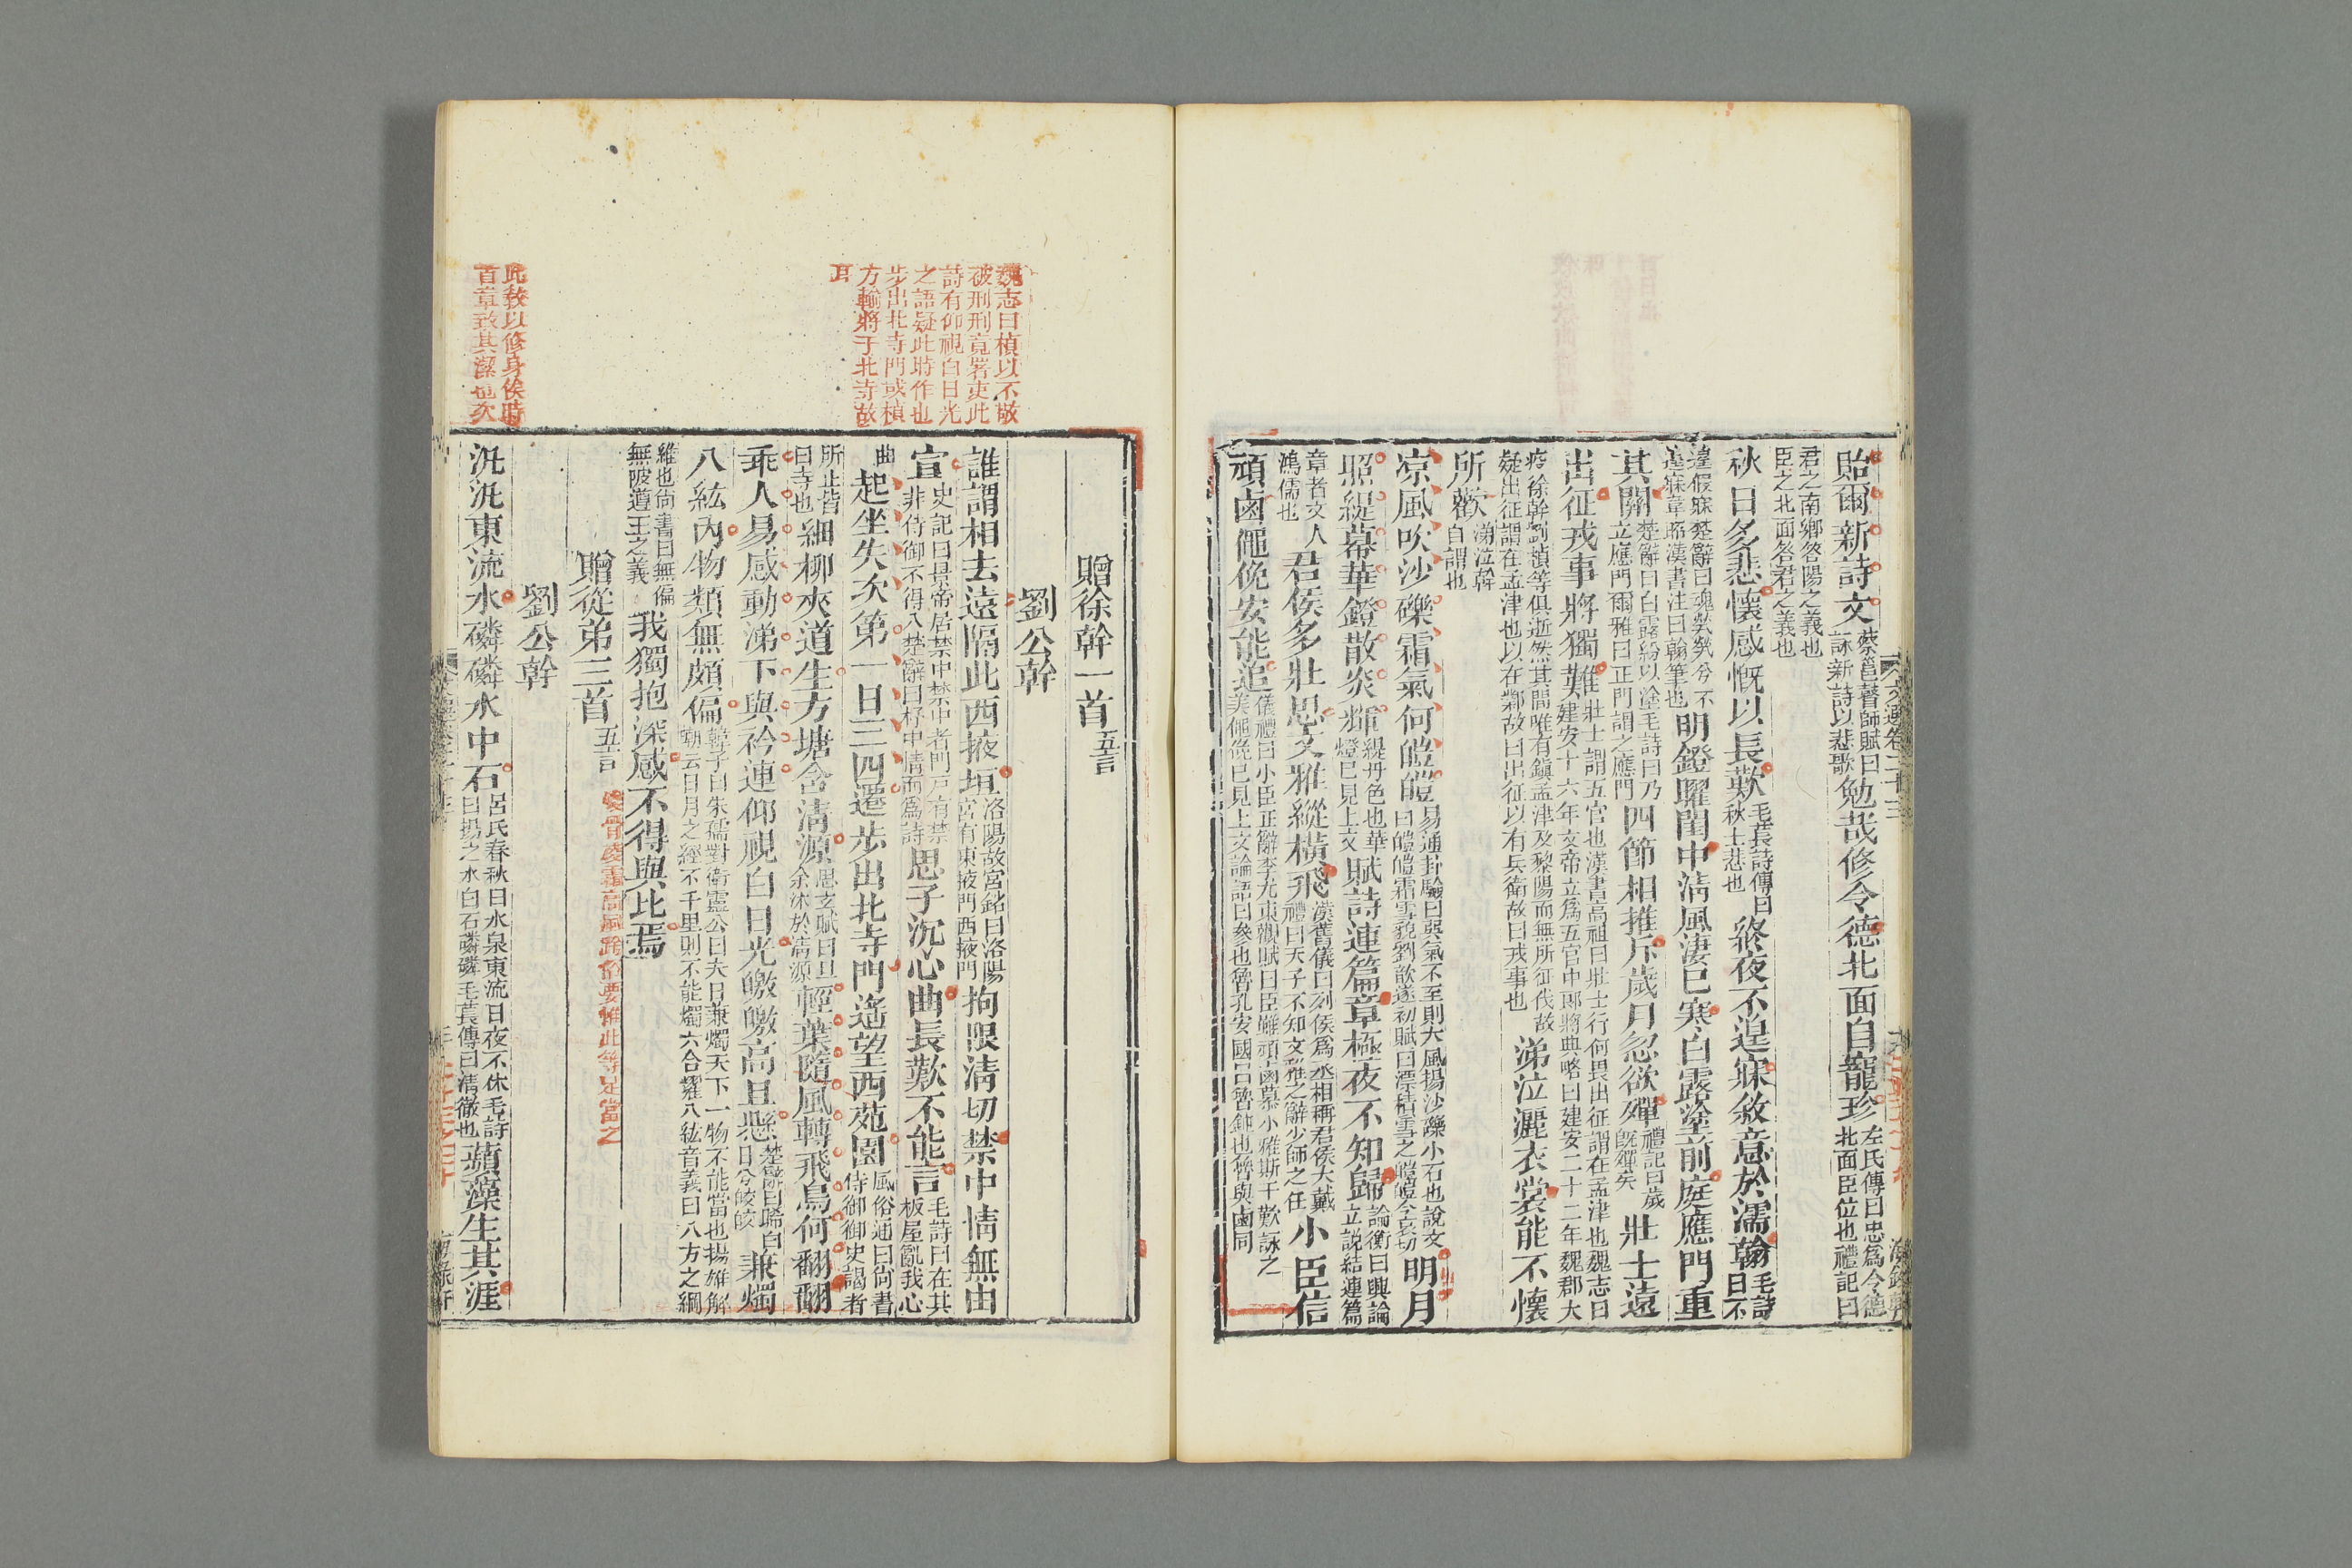 貽爾新詩文蔡邕瞽師賦曰詠新詩以悲歌勉哉修令德北面自寵珍左氏傳曰忠爲令德北面臣位也禮記曰
君之南鄉答陽之義也臣之北面答君之義也
秋日多悲懷感慨以長歎毛萇詩傳曰秋士悲也終夜不遑寐敘意於濡翰毛詩曰不
遑假寐楚辭曰魂煢煢兮不遑寐韋昭漢書注曰翰筆也明鐙曜閨中淸風淒已寒白露塗前庭應門重
其關楚辭曰白露紛以塗毛詩曰乃立應門爾雅曰正門謂之應門四節相推斥歲月忽欲殫禮記曰歲旣殫矣壯士遠
出征戎事將獨難壯士謂五官也漢書高祖曰壯士行何畏出征謂在孟津也魏志曰建安十六年文帝立爲五官中郎將典略曰建安二十二年魏郡大
疫徐幹劉楨等俱逝然其間唯有鎭孟津及黎陽而無所征伐故疑出征謂在孟津也以在鄴故曰出征以有兵衞故曰戎事也涕泣灑衣裳能不懷
所歡涕泣幹自謂也
凉風吹沙礫霜氣何皚皚易通卦驗曰巽氣不至則大風揚沙礫小石也說文曰皚皚霜雪貌劉歆遂初賦曰漂積雪之皚皚今哀切明月
照緹幕華鐙散炎輝緹丹色也華燈已見上文賦詩連篇章極夜不知歸論衡曰興論立說結連篇
章者文人鴻儒也君侯多壯思文雅縱橫飛漢舊儀曰列侯爲丞相稱君侯大戴禮曰天子不知文雅之辭少師之任小臣信
頑鹵僶俛安能追儀禮曰小臣正辭李尤東觀賦曰臣雖頑鹵慕小雅斯干歎詠之美僶俛已見上文論語曰參也魯孔安國曰魯鈍也魯與鹵同
贈徐幹一首五言
劉公幹
誰謂相去遠隔此西掖垣洛陽故宮銘曰洛陽宮有東掖門西掖門拘限淸切禁中情無由
宣史記曰景帝居禁中禁中者門戶有禁非侍御不得入楚辭曰杼中情而爲詩思子沉心曲長歎不能言毛詩曰在其板屋亂我心
曲起坐失次第一日三四遷步出北寺門遙望西苑園風俗通曰尙書侍御御史謁者
所止皆曰寺也細柳夾道生方塘含淸源思玄賦曰旦余沐於淸源輕葉隨風轉飛鳥何翻翻
乖人易感動涕下與衿連仰視白日光皦皦高且懸楚辭曰晞白日兮皎皎兼燭
八紘內物類無頗偏韓子曰朱孺對衞靈公曰夫日兼燭天下一物不能當也揚雄解嘲云日月之經不千里則不能燭六合耀八紘音義曰八方之綱
維也尙書曰無偏無陂遵王之義我獨抱深感不得與比焉
贈從弟三首五言
劉公幹
汎汎東流水磷磷水中石呂氏春秋曰水泉東流日夜不休毛詩曰揚之水白石磷磷毛萇傳曰淸徹也蘋藻生其涯
魏志曰楨以不敬
被刑刑竟署吏此
詩有仰視白日光
之語疑此時作也
步出北寺門或楨
方輸將于北寺故
耳
骨凌霜高風跨俗要惟此等足當之
此教以修身俟時
首章致其潔也次